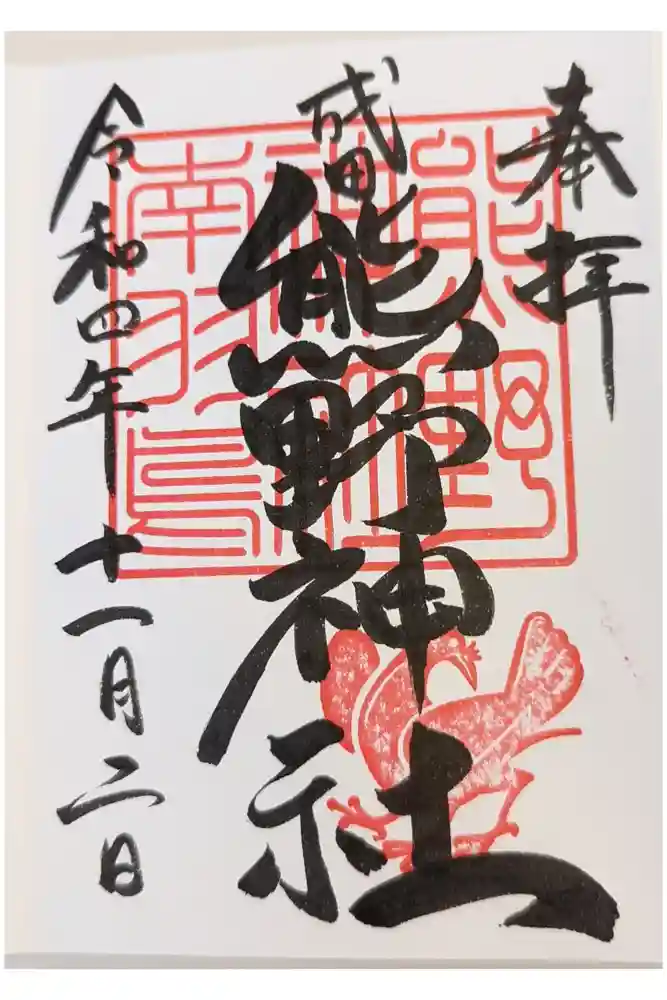 奉拝
成田
熊野神社
令和四年十一月二日
熊野
南羽鳥